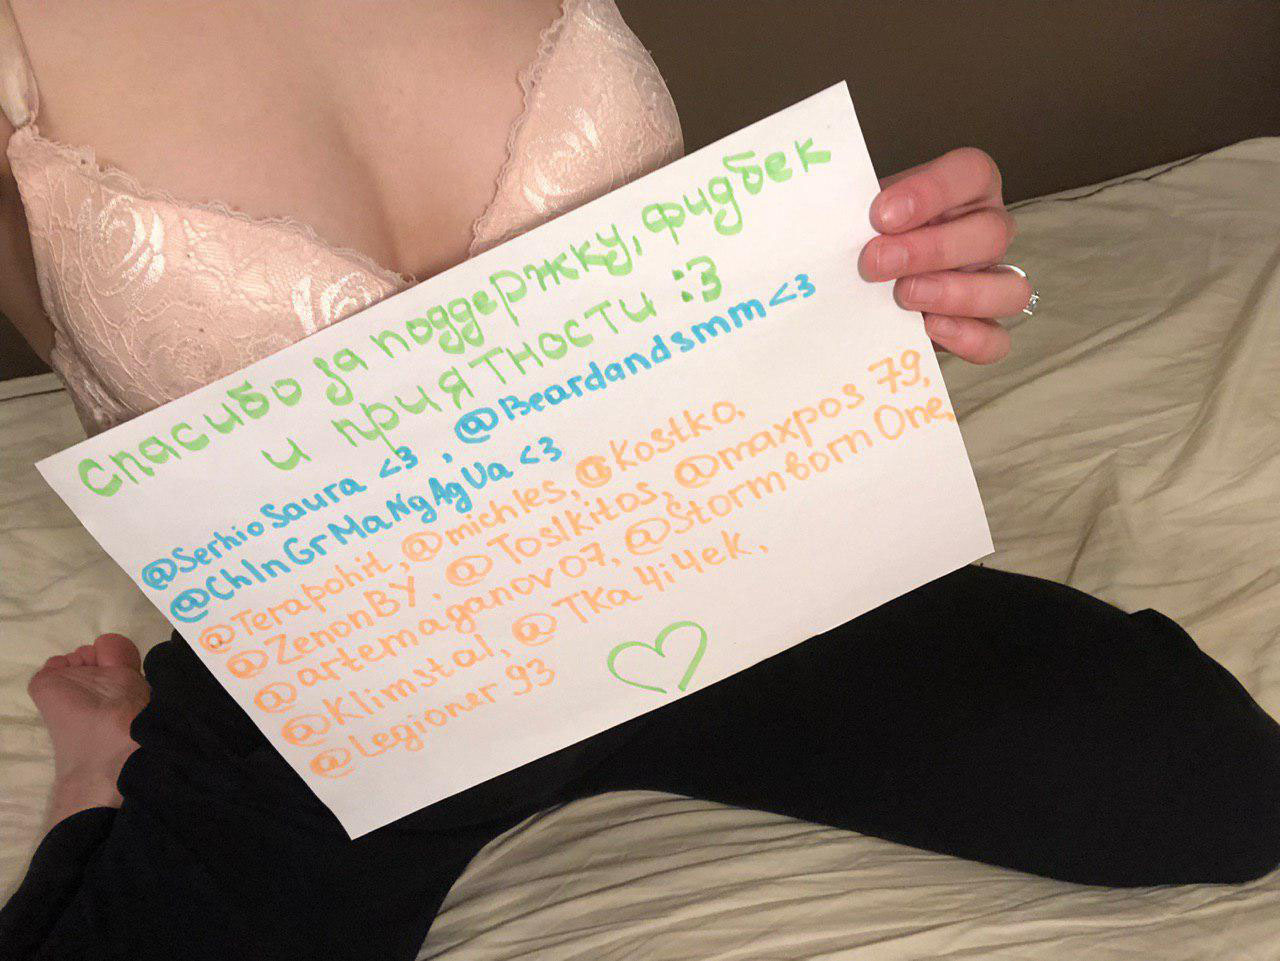 Спасибо за поддержку, фидбек
и приятности :3
@SerhioSaura <3, @Beardandsmm <3
@ChInGrMaNgAgUa <3
@Terapohit, @michles, @Kostko,
@ZenonBY, @Toslkitos, @maxpos 79,
@artemaganov07, @StormbornOne,
@Klimstal, @TKa4i4ek,
@Legioner93